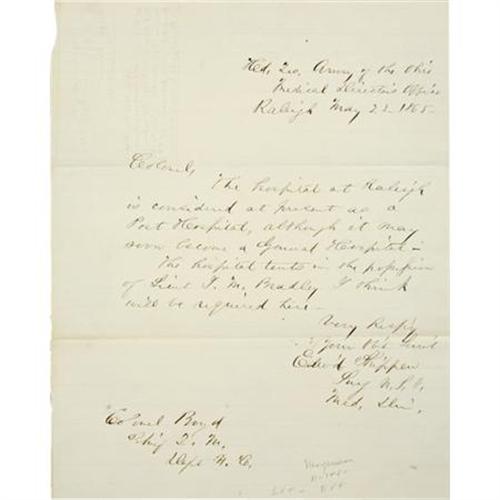 Hd. Qrs. Army of the Ohio
Medical Director's Office
Raleigh May 22 1865-
Colonel,
The hospital at Raleigh
is considered at present as a
Post Hospital, although it may
soon become a General Hospital-
The hospital tents in the possession
of Lieut T. M. Bradley I think
will be required here-
Very Resp'y
Your Obt Servt
Edw'd Shippen
Surg U.S.V.
Med. Dir.
Colonel Boyd
Chief Q. M.
Dept N. C.